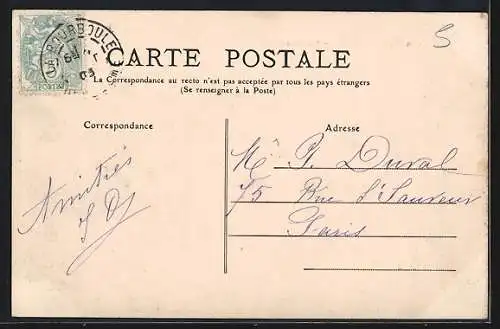 LA BOURBOULE
5
CARTE POSTALE
La Correspondance au recto n'est pas acceptée par tous les pays étrangers
(Se renseigner à la Poste)
Correspondance
Adresse
Amitiés
Mr P. Duval
75 Rue St Sauveur
Paris